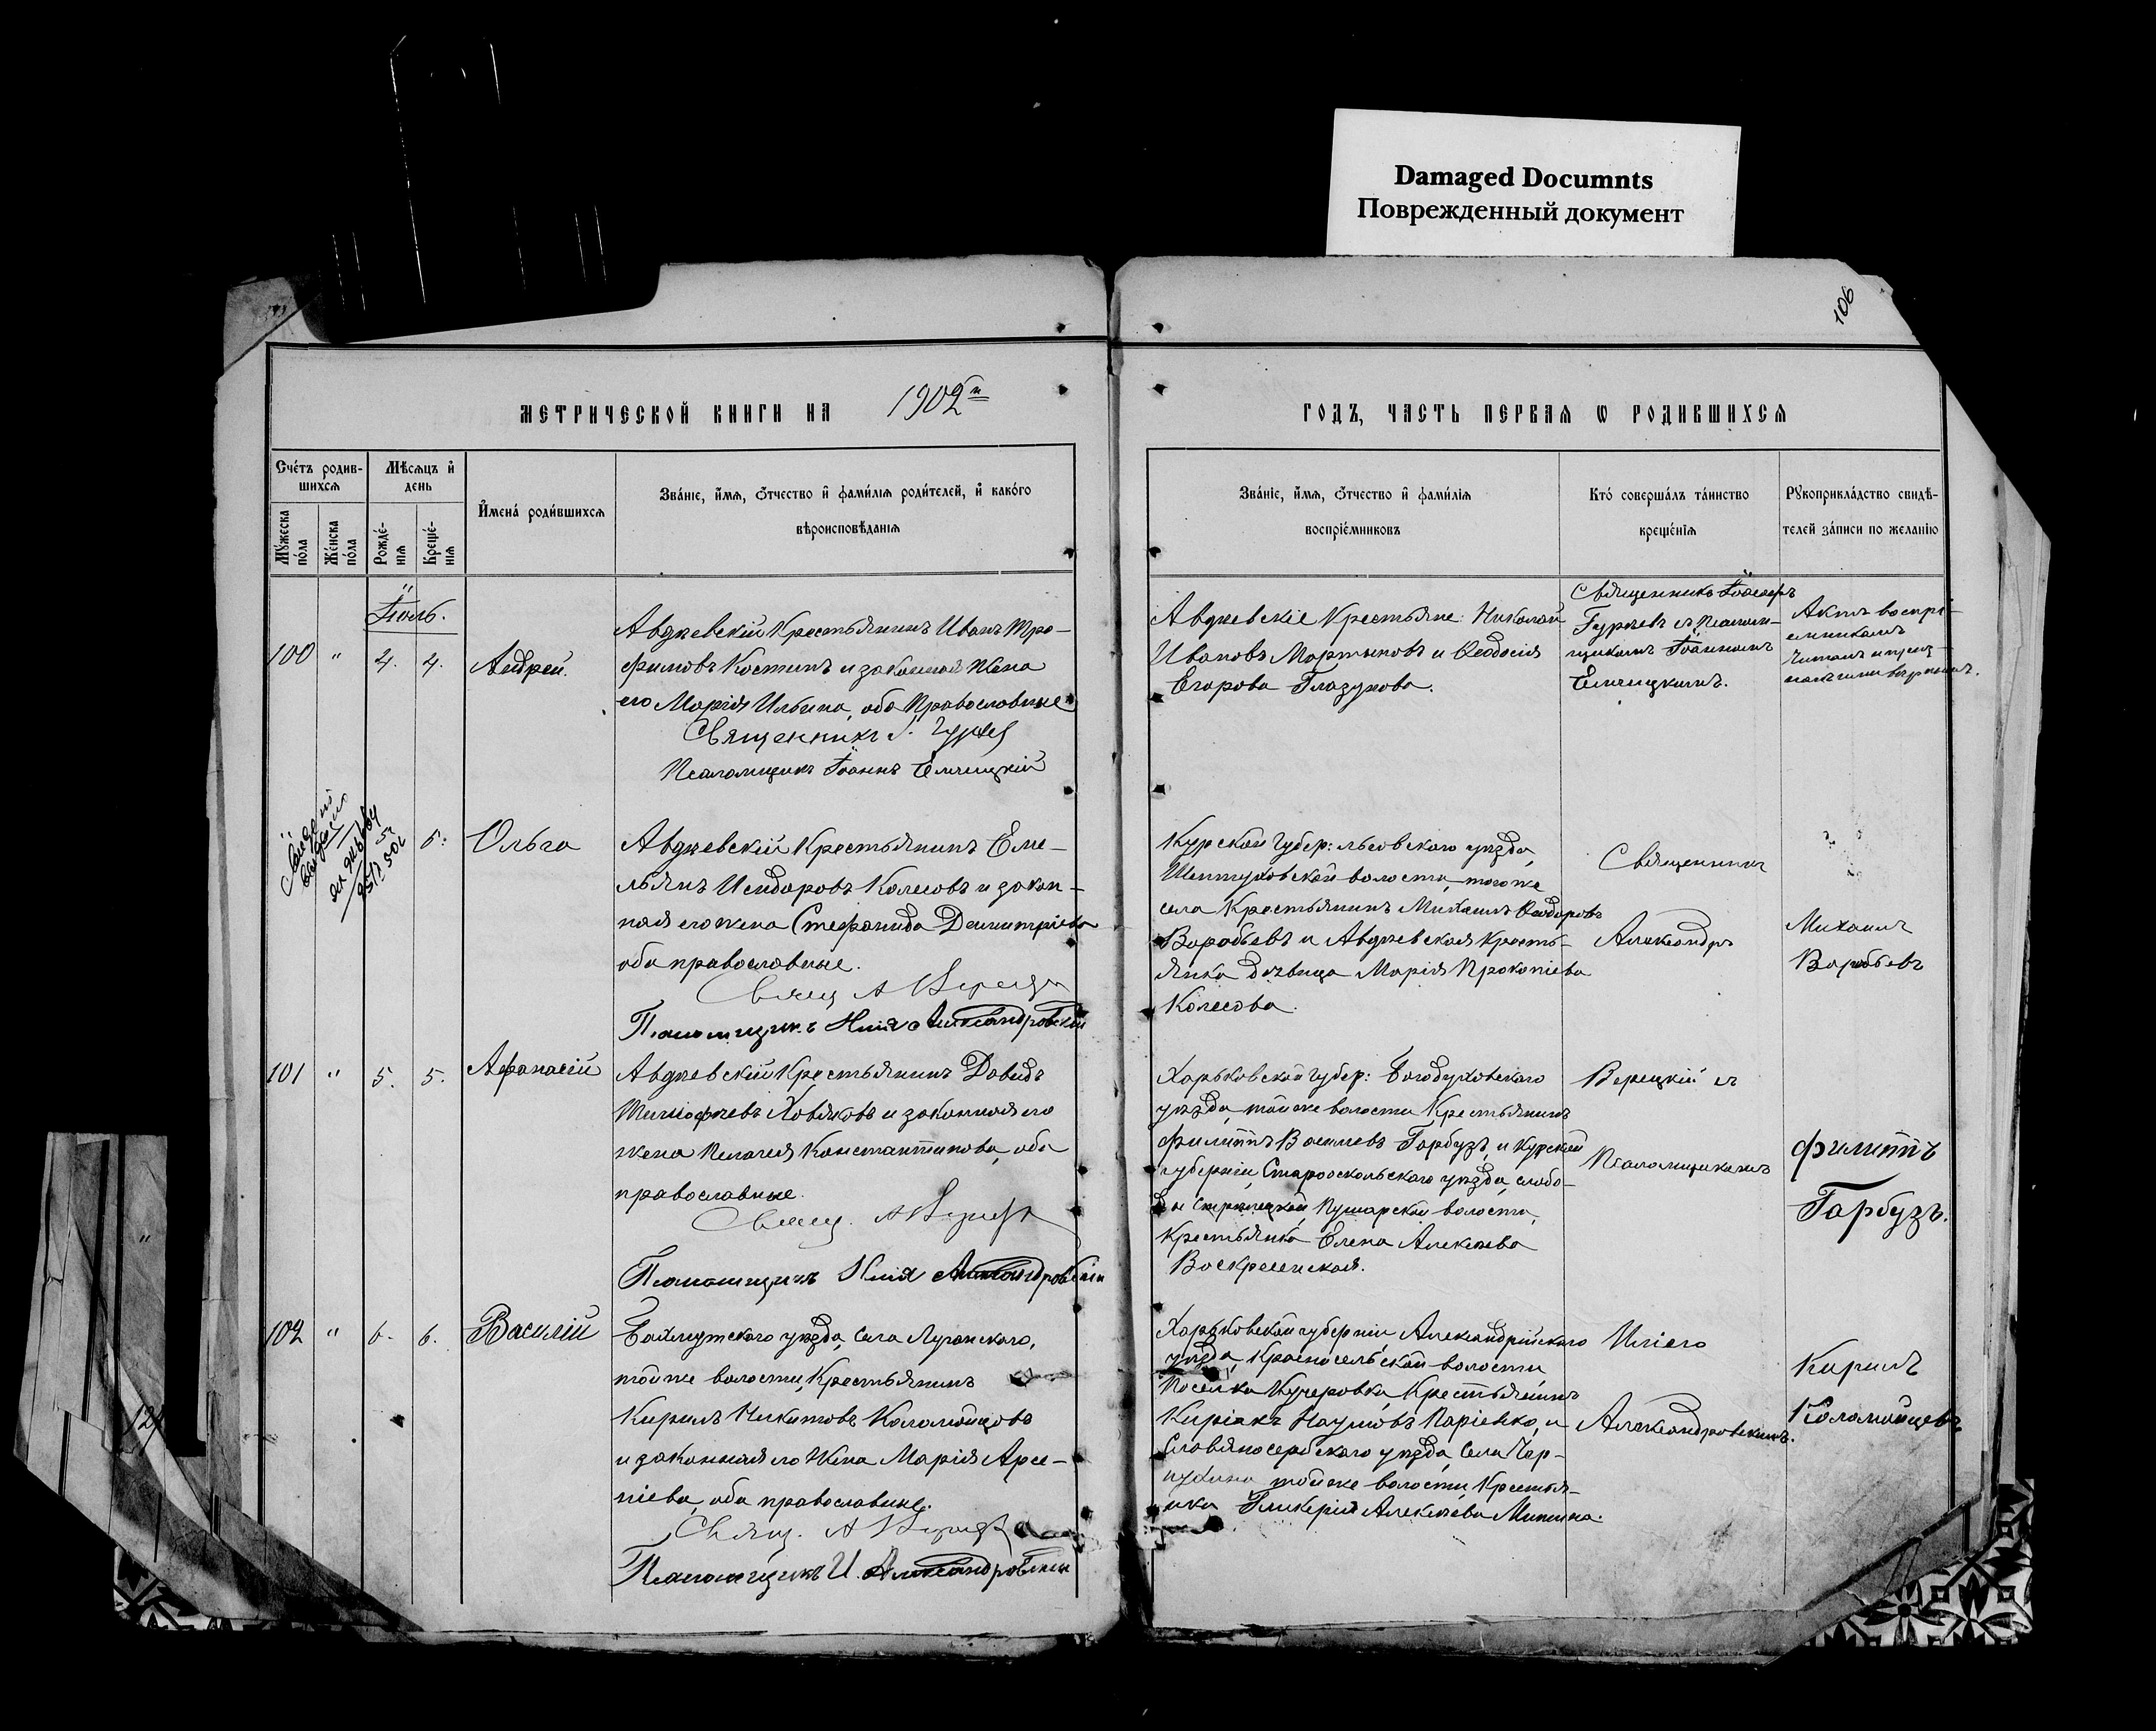 Damaged Documnts
Поврежденный документ
106
МЕТРИЧЕСКОЙ КНИГИ НА 1902й
ГОДЪ, ЧАСТЬ ПЕРВАѦ Ѡ РОДИВШИХСѦ
Счéтъ родив-
шихсѧ
Мѣсѧцъ и҆
день
Мꙋ́жеска
пóла
Жéнска
пóла
Рождé-
нїѧ
Крещé-
нїѧ
И҆мена̀ роди́вшихсѧ
Зва́нїе, и҆́мѧ, ѻ҆́тчество и҆ фами́лїѧ роди́телей, и҆ како́гѡ
вѣроисповѣ́данїѧ
Зва́нїе, и҆́мѧ, ѻ҆́тчество и҆ фами́лїѧ
воспрїе́мниковъ
Ктó соверша́лъ та́инство
креще́нїѧ
Рꙋкоприкла́дство свидѣ́-
телей за́писи по жела́нїю
Іюль.
100 " 4. 4. Андрей.
Авдѣевскій Крестьянинъ Иванъ Тро-
фимовъ Костинъ и законная жена
его Марія Ильина, оба Православные
Священникъ І. Гурѣев
Псаломщикъ Іоаннъ Емчицкій
Авдѣевскіе Крестьяне: Николай
Ивановъ Мартыновъ и Ѳеодосія
Егорова Глазунова.
Священникъ
Гурѣевъ съ Псалом-
щикомъ Іоанномъ
Емчицкимъ.
Актъ воспрі-
емникамъ
читанъ и приз-
5. Ольга
Авдѣевскій Крестьянинъ Еме-
льянъ Исидоровъ Колесовъ и закон-
ная его жена Стефанида Димитріева
оба православные.
Свящ А Верецкій
Псаломщикъ Илія Александровскій
Курской Губер: Льговскаго уѣзда,
Шептуховской волости, того же
села Крестьянинъ Михаилъ Ѳеодоровъ
Воробьевъ и Авдѣевская Кресть-
янка дѣвица Марія Прокопіева
Колесова.
Священникъ
Александръ
Михаилъ
Воробьевъ
101 " 5. 5. Афанасій
Авдѣевскій Крестьянинъ Давидъ
Тимофѣевъ Ховяковъ и законная его
жена Пелагея Константинова, оба
православные.
Свящ. А Верецкій
Псаломщикъ Илія Александровскій
Харьковской губер: Богодуховскаго
уѣзда, той же волости Крестьянинъ
Филиппъ Васильевъ Гарбузъ, и Курской
губерніи, Старооскольскаго уѣзда, слобо-
ды Стрѣлецкой, Пушкарской волости,
Крестьянка Елена Алексѣева
Воскресенская.
Верецкій съ
Псаломщикомъ
Филиппъ
Гарбузъ.
102 " 6. 6. Василій
Бахмутскаго уѣзда, Села Луганскаго,
той же волости, Крестьянинъ
Кирилъ Никитовъ Коломойцовъ
и законная его Жена Марія Арсе-
ніева, оба православные.
Свящ. А Верецкій
Псаломщикъ И. Александровскій
Харьковской губерніи, Александрійскаго
уѣзда, Красносельской волости,
поселка Кучеровка, Крестьянинъ
Киріакъ Наумовъ Паріенко, и
Славяносербскаго уѣзда, Села Чер-
нухина той же волости, Крестья-
нка Гликерія Алексѣева Минина.
Иліею
Александровскимъ.
Кирилъ
Коломойцевъ
124